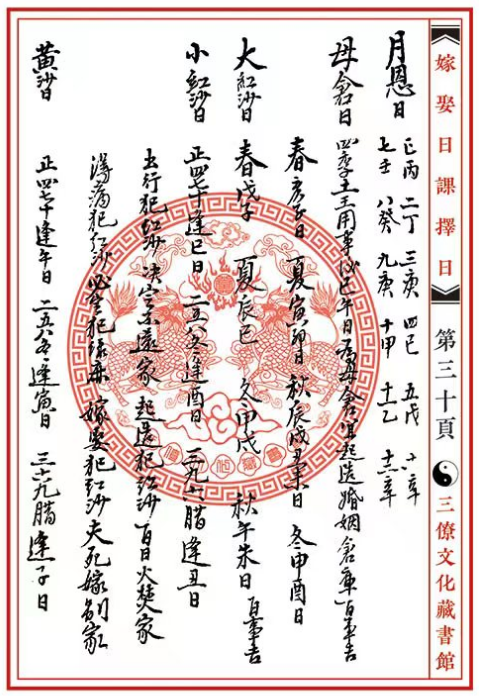 嫁娶日課擇日 第三十頁 三僚文化藏書館
月恩日 正丙 二丁 三庚 四巳 五戊 六辛
七壬 八癸 九庚 十甲 十一乙 十二辛
母倉日 四季土王用事後巳午日為母倉宜起造婚姻倉庫百事吉
春亥子日 夏寅卯日 秋辰戌丑未日 冬申酉日
大紅沙日 春戊子 夏辰巳 冬甲戌 秋午未日 百事吉
小紅沙日 正四七十逢巳日 二五八十一逢酉日 三九六腊逢丑日
出行犯紅沙決定不還家 起造犯紅沙百日火焚家
得病犯紅沙必定犯 嫁娶犯紅沙夫死嫁別家
黄沙日 正四七十逢午日 二五八十一逢寅日 三六九腊逢子日